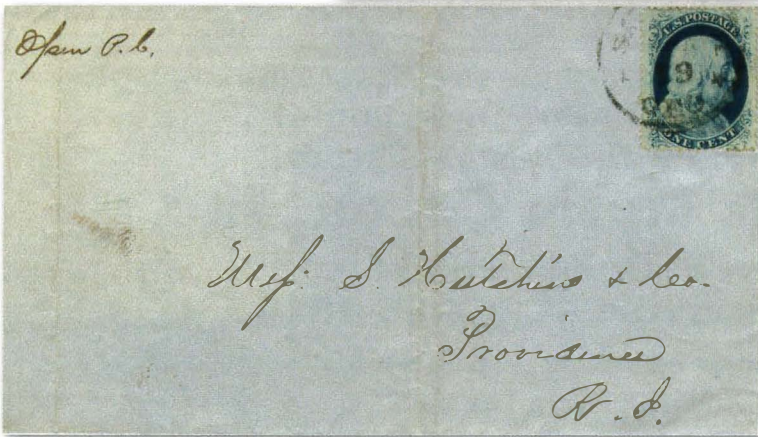 Open P. C.
U.S. POSTAGE
19
DEC
ONE CENT
Mess: S. Hutchins & Co.
Providence
R. I.